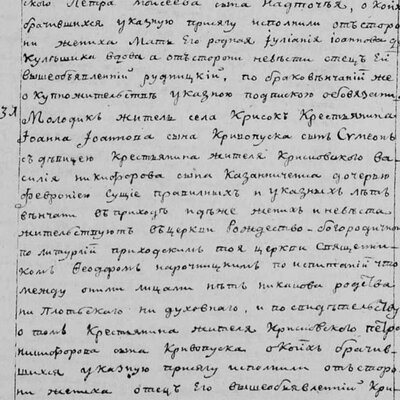 ского Петра Моисеева сына Надточѣя, о коихъ
брачившихся указную присягу исполнили отъ сторо
ни жениха мать Его родная Іулiанія Іоаннова
Кулѣшиха вдова а отъ сторони невѣсти отецъ Ей
вышеобъявленній Рудницкій, по браковѣнчаній же
о купножительствѣ указною подпискою обовязани
31 Молодикъ житель села Крисокъ Крестьянина
Іоанна Іоаннова сына Кривопуска сынъ Сумеонъ
съ дѣвицею Крестьянина жителя Крисковского Ва
силія Никифорова сына Казанничевка дочерью
Февронiею сущіе правилныхъ и указныхъ лѣтъ
вѣнчати въ приходѣ идѣже женихъ и невѣста
жителствуютъ въ церкви Рождество-Богородично
по литургіи приходскимъ тоя церкви священни
комъ Феодоромъ по испитаній что
между опими лицами нѣтъ никакова родства
ни плотскаго ни духовнаго, и по свидѣтельству
о томъ Крестьянина жителя Крисковского Петра
Никифорова сына Кривопуска о коихъ брачив
шихся указную присягу исполнили отъ сторо
ни жениха отецъ Его вышеобъявленній Кри